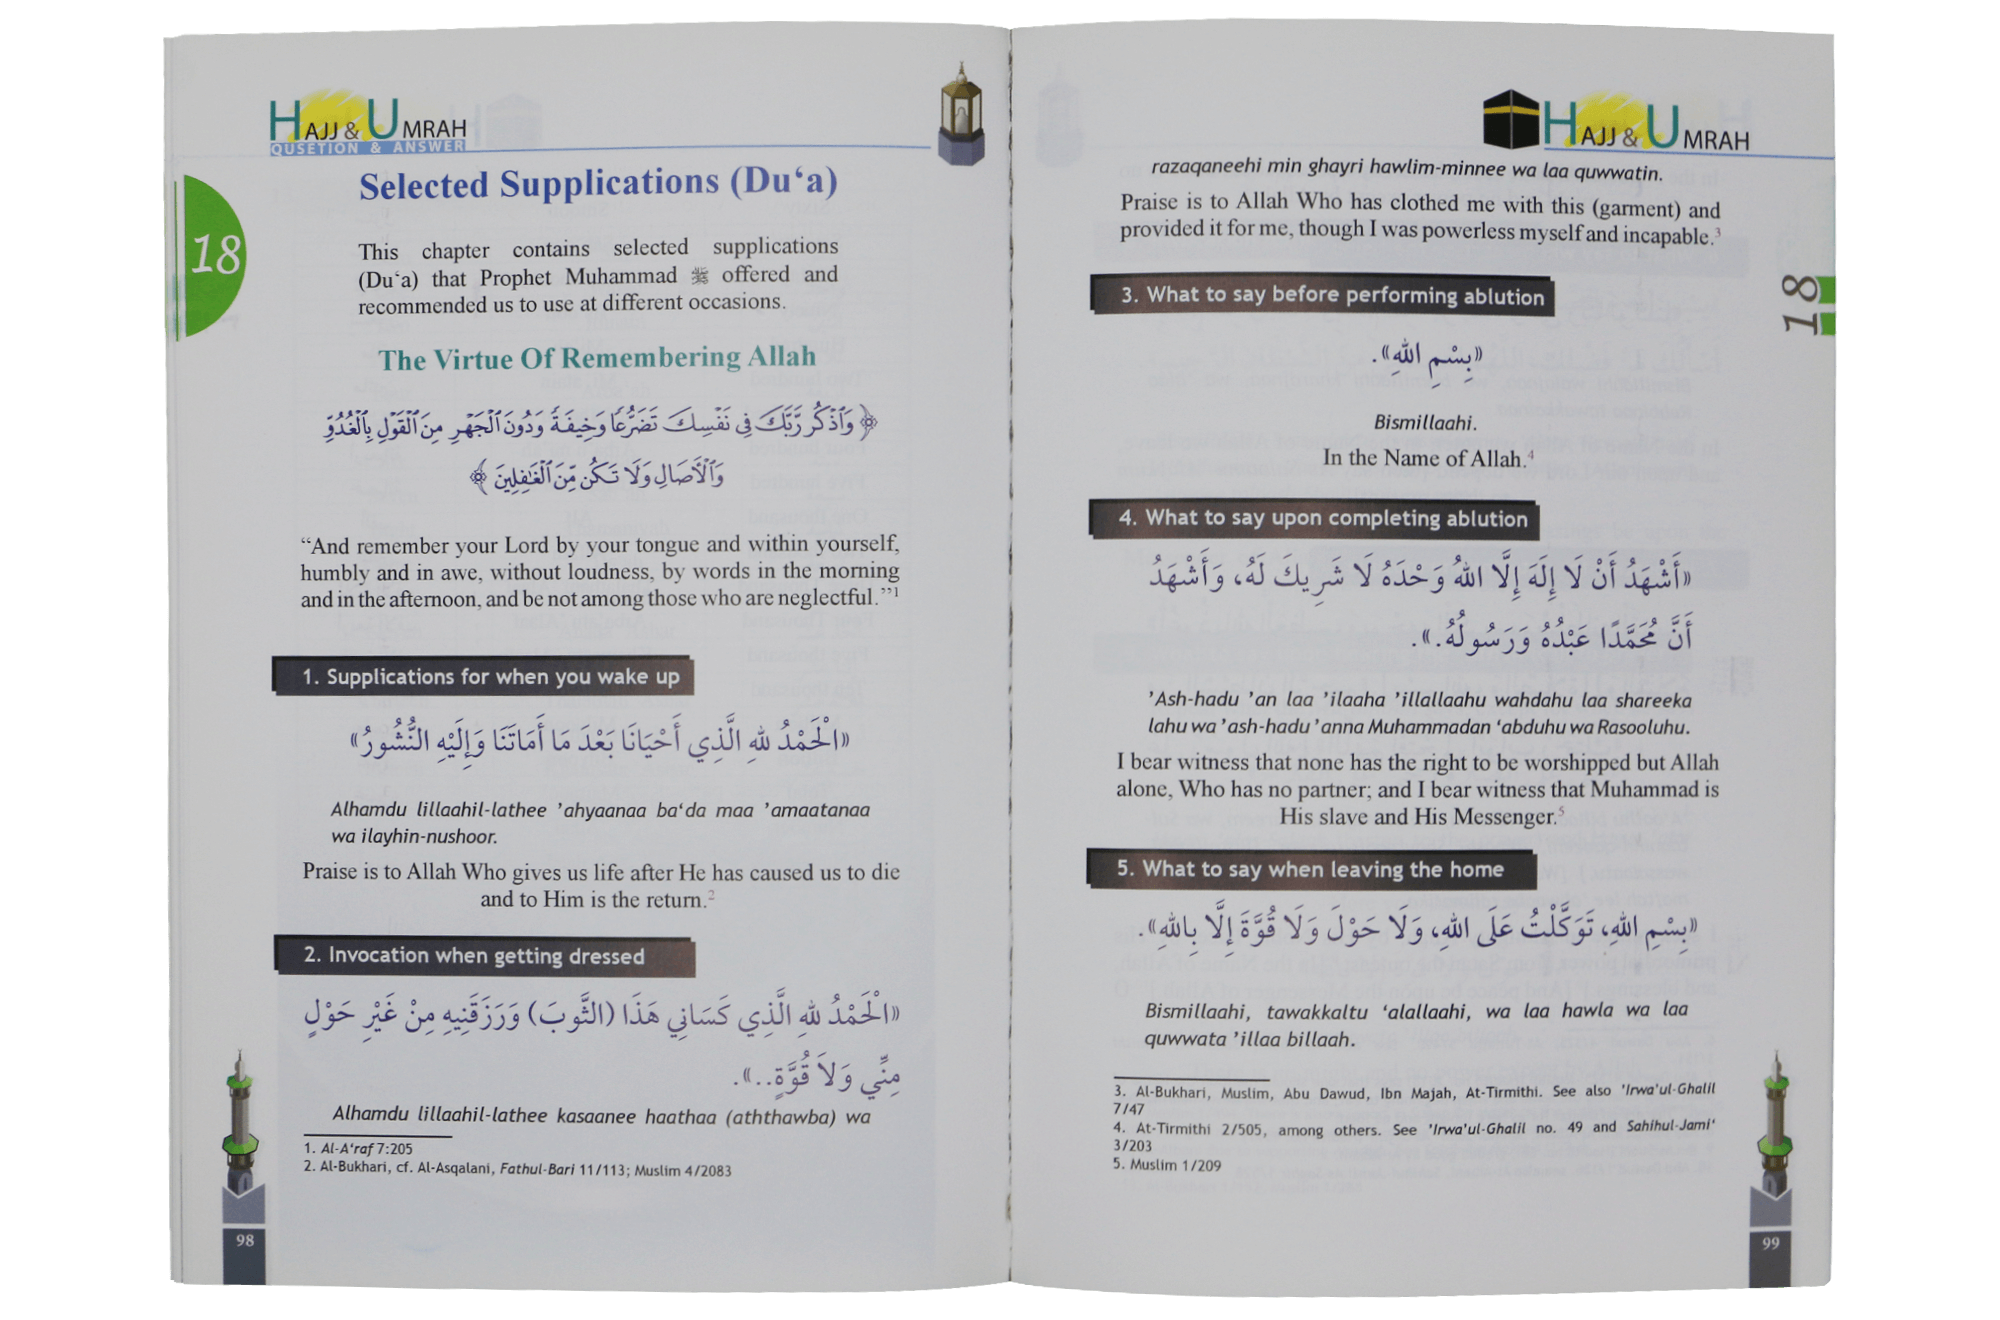 HAJJ & UMRAH
QUSETION & ANSWER
18
Selected Supplications (Du‘a)
This chapter contains selected supplications
(Du‘a) that Prophet Muhammad ﷺ offered and
recommended us to use at different occasions.
The Virtue Of Remembering Allah
﴿ وَٱذْكُر رَّبَّكَ فِى نَفْسِكَ تَضَرُّعًا وَخِيفَةً وَدُونَ ٱلْجَهْرِ مِنَ ٱلْقَوْلِ بِٱلْغُدُوِّ
وَٱلْءَاصَالِ وَلَا تَكُن مِّنَ ٱلْغَٰفِلِينَ ﴾
“And remember your Lord by your tongue and within yourself,
humbly and in awe, without loudness, by words in the morning
and in the afternoon, and be not among those who are neglectful.”1
1. Supplications for when you wake up
«الْحَمْدُ للهِ الَّذِي أَحْيَانَا بَعْدَ مَا أَمَاتَنَا وَإِلَيْهِ النُّشُورُ»
Alhamdu lillaahil-lathee ’ahyaanaa ba‘da maa ’amaatanaa
wa ilayhin-nushoor.
Praise is to Allah Who gives us life after He has caused us to die
and to Him is the return.2
2. Invocation when getting dressed
«الْحَمْدُ للهِ الَّذِي كَسَانِي هَذَا (الثَّوبَ) وَرَزَقَنِيهِ مِنْ غَيْرِ حَوْلٍ
مِنِّي وَلاَ قُوَّةٍ..».
Alhamdu lillaahil-lathee kasaanee haathaa (aththawba) wa
1. Al-A‘raf 7:205
2. Al-Bukhari, cf. Al-Asqalani, Fathul-Bari 11/113; Muslim 4/2083
98
HAJJ & UMRAH
razaqaneehi min ghayri hawlim-minnee wa laa quwwatin.
Praise is to Allah Who has clothed me with this (garment) and
provided it for me, though I was powerless myself and incapable.3
18
3. What to say before performing ablution
«بِسْمِ اللهِ».
Bismillaahi.
In the Name of Allah.4
4. What to say upon completing ablution
«أَشْهَدُ أَنْ لَا إِلَهَ إِلَّا اللهُ وَحْدَهُ لَا شَرِيكَ لَهُ، وَأَشْهَدُ
أَنَّ مُحَمَّدًا عَبْدُهُ وَرَسُولُهُ.».
’Ash-hadu ’an laa ’ilaaha ’illallaahu wahdahu laa shareeka
lahu wa ’ash-hadu ’anna Muhammadan ‘abduhu wa Rasooluhu.
I bear witness that none has the right to be worshipped but Allah
alone, Who has no partner; and I bear witness that Muhammad is
His slave and His Messenger.5
5. What to say when leaving the home
«بِسْمِ اللهِ، تَوَكَّلْتُ عَلَى اللهِ، وَلَا حَوْلَ وَلَا قُوَّةَ إِلَّا بِاللهِ».
Bismillaahi, tawakkaltu ‘alallaahi, wa laa hawla wa laa
quwwata ’illaa billaah.
3. Al-Bukhari, Muslim, Abu Dawud, Ibn Majah, At-Tirmithi. See also ’Irwa’ul-Ghalil
7/47
4. At-Tirmithi 2/505, among others. See ’Irwa’ul-Ghalil no. 49 and Sahihul-Jami‘
3/203
5. Muslim 1/209
99